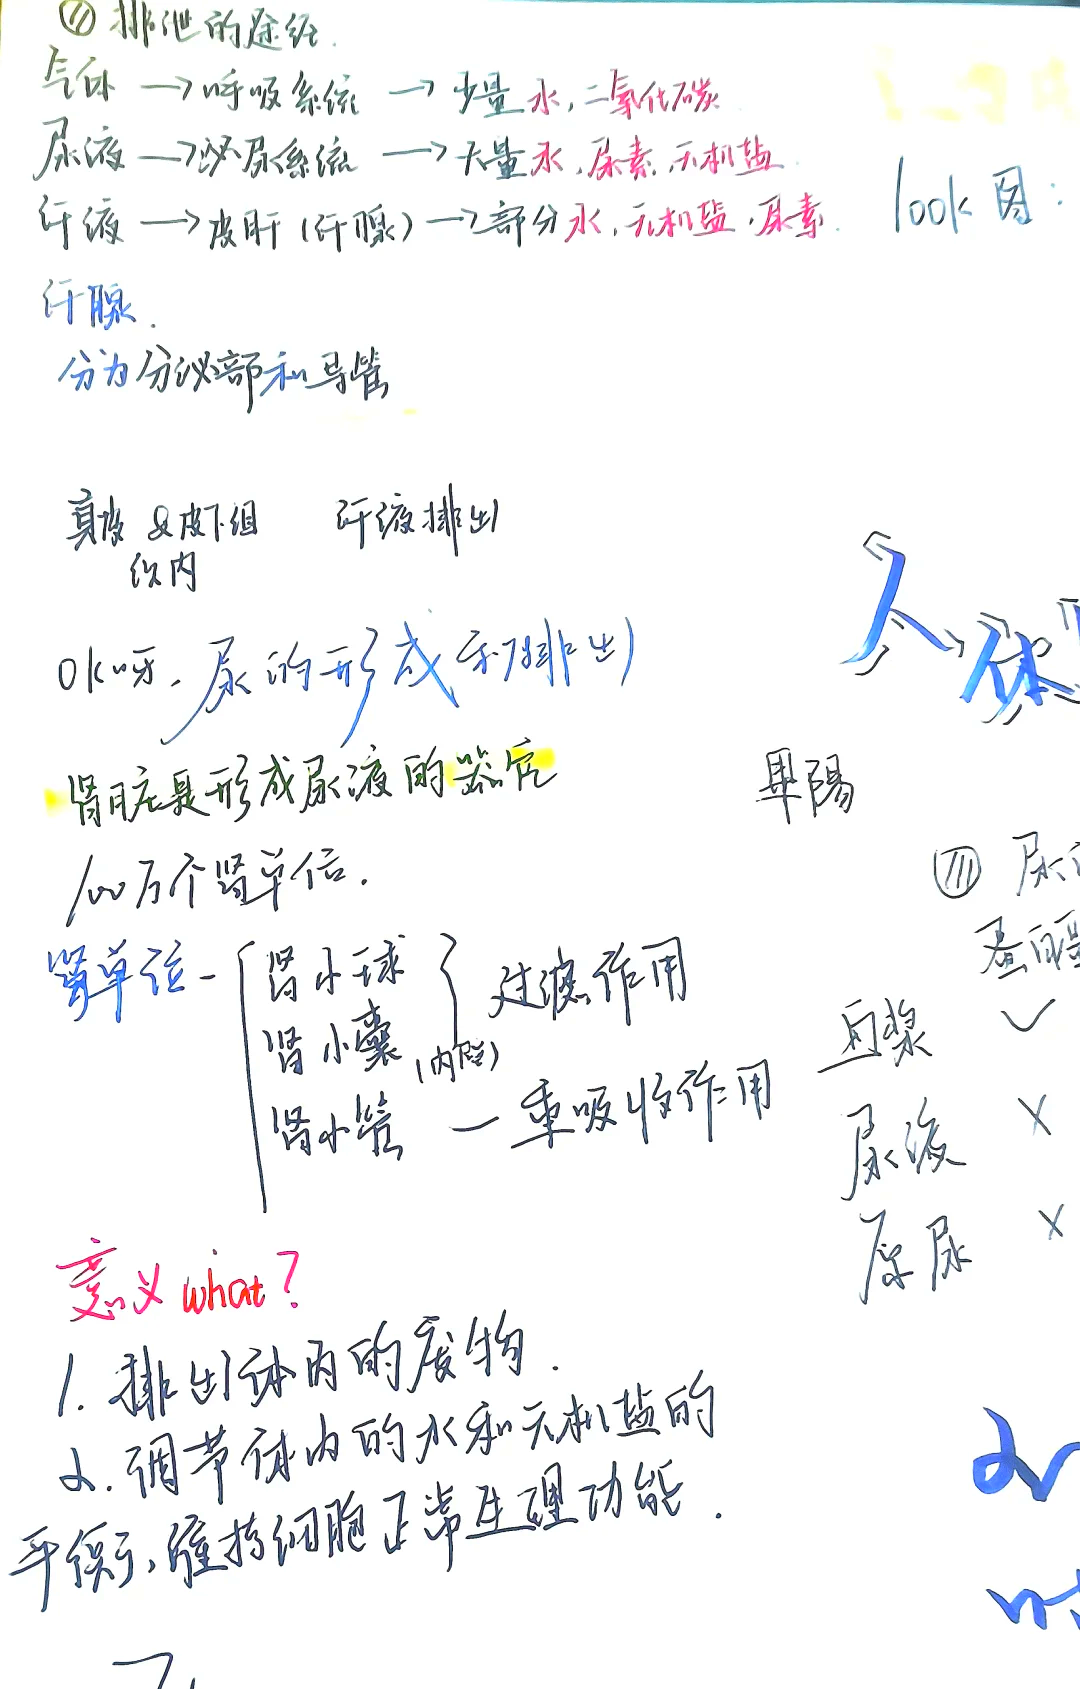 ② 排泄的途径.
气体 → 呼吸系统 → 少量水, 二氧化碳
尿液 → 泌尿系统 → 大量水, 尿素, 无机盐
汗液 → 皮肤 (汗腺) → 部分水, 无机盐, 尿素.
look 图:
汗腺.
分为分泌部和导管
真皮 & 皮下组织内
汗液排出
人体
ok呀. 尿的形成和排出
肾脏是形成尿液的器官
100万个肾单位.
肾单位 -
肾小球
肾小囊 (内腔)
过滤作用
肾小管 — 重吸收作用
③ 尿
蛋白
豆浆 ✓
尿液 ×
原尿 ×
意义 what?
1. 排出体内的废物.
2. 调节体内的水和无机盐的
平衡, 维持细胞正常生理功能.